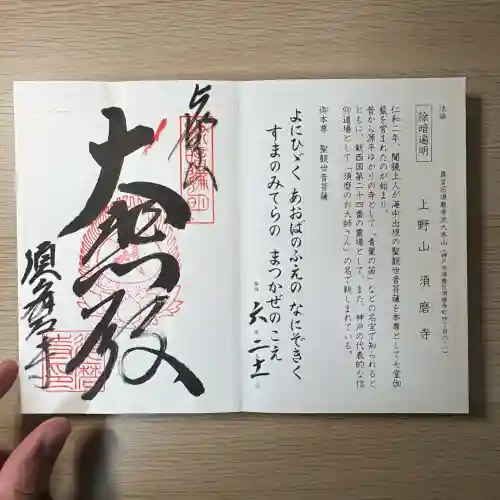 法話
除暗遍明
真言宗須磨寺派大本山
上野山 須磨寺
仁和二年、聞鏡上人が海中出現の聖観世音菩薩を本尊として七堂伽
藍を営まれたのが始まり。
昔から源平ゆかりの寺として「青葉の笛」などの名宝で知られると
ともに、新西国第二十四番の霊場として、また、神戸の代表的な信
仰道場として「須磨のお大師さん」の名で親しまれている。
御本尊 聖観世音菩薩
よにひゞく あおばのふえの なにぞきく
すまのみてらの まつかぜのこえ
奉拝
大悲殿
須磨寺